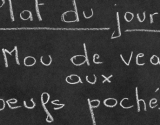 Plat du jour
Mou de vea
aux
oeufs poché